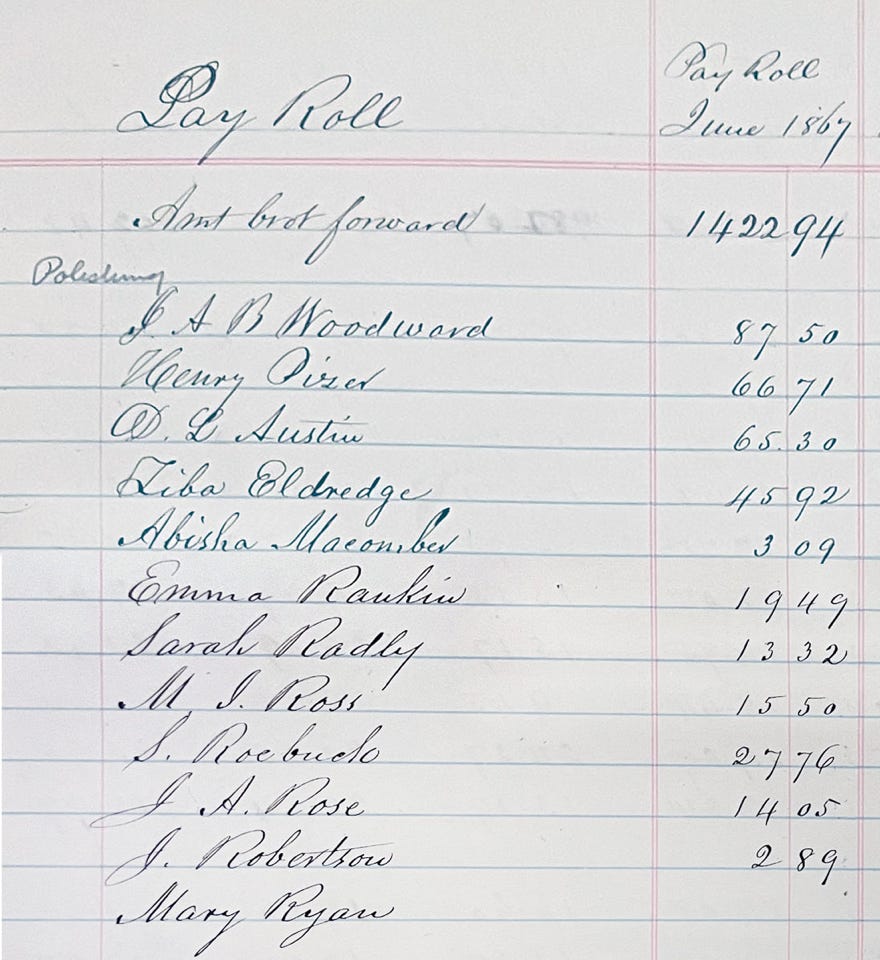 Pay Roll
Pay Roll
June 1867
Amt brot forward 1422 94
Polishing
J A B Woodward 87 50
Henry Pizer 66 71
D. L Austin 65. 30
Ziba Eldredge 45 92
Abisha Macomber 3 09
Emma Rankin 19 49
Sarah Radly 13 32
M. J. Ross 15 50
S. Roebuck 27 76
J A. Rose 14 05
J. Robertson 2 89
Mary Ryan